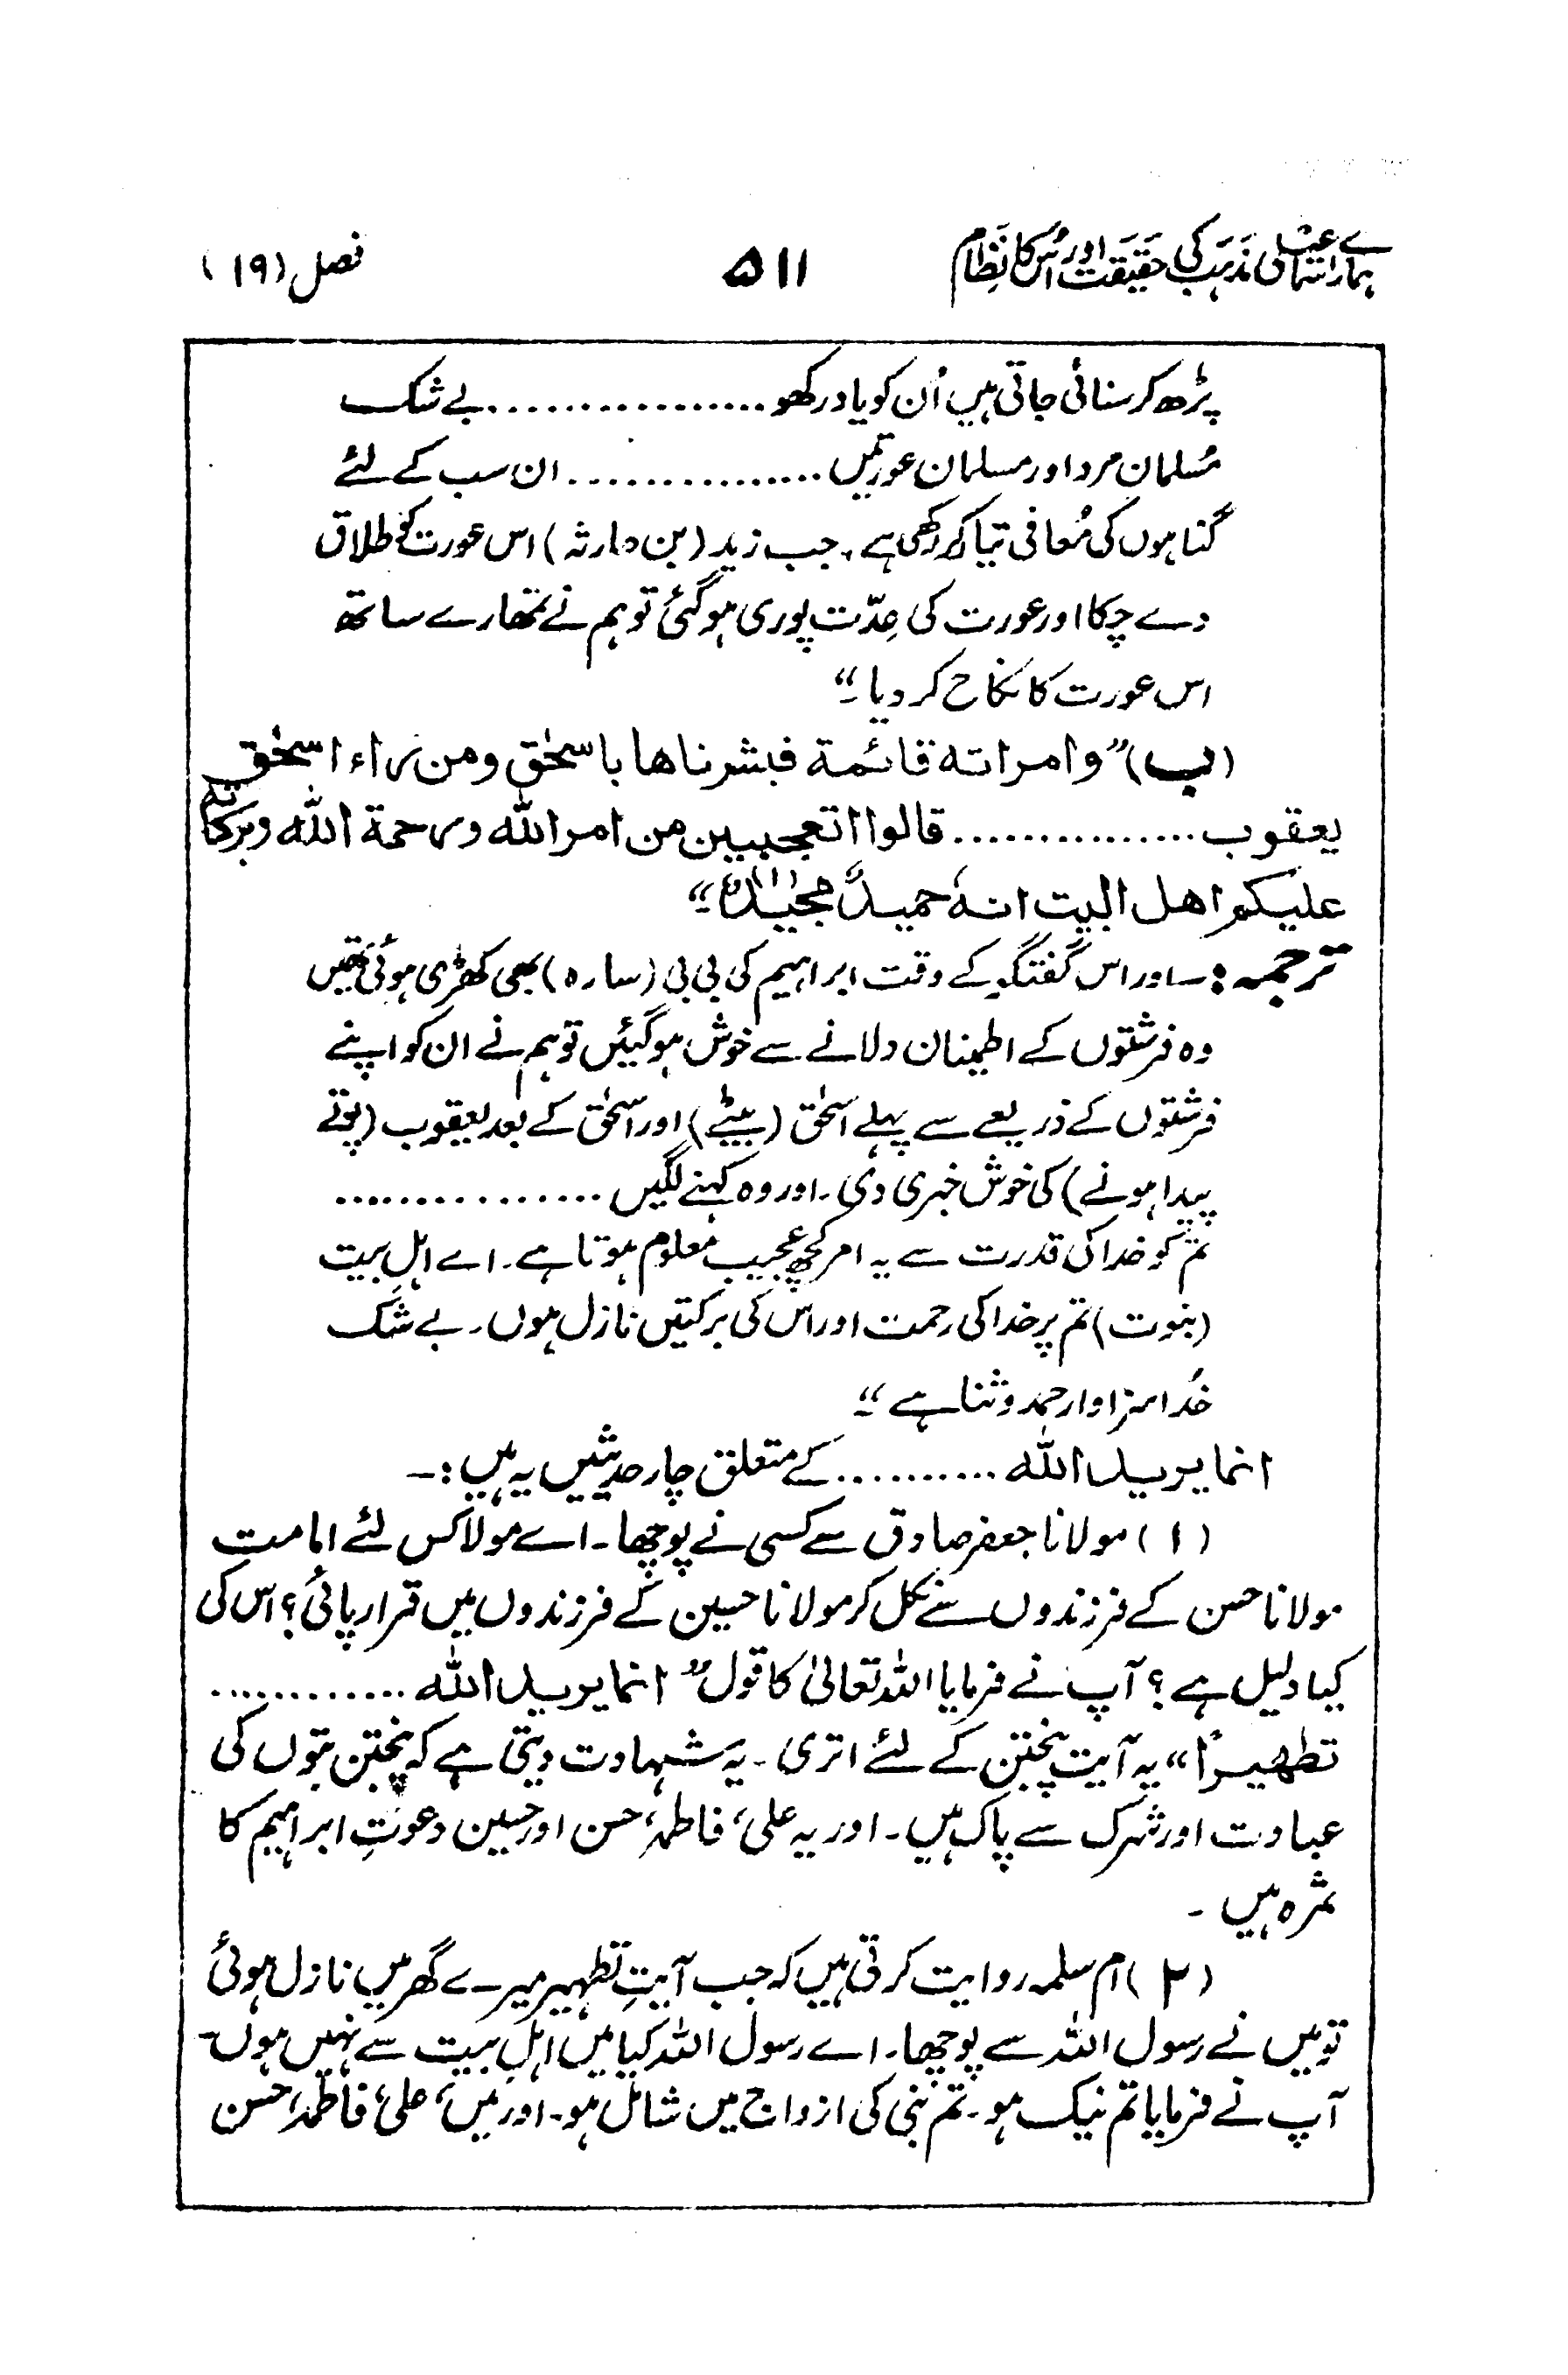 ہمارے اسماعیلی مذہب کی حقیقت اور اس کا نظام ۵۱۱ فصل (۱۹)
پڑھ کر سنائی جاتی ہیں اُن کو یاد رکھو .................. بے شک
مُسلمان مرد اور مسلمان عورتیں ................ ان سب کے لئے
گناہوں کی مُعافی تیار کر رکھی ہے۔ جب زید (بن حارثہ) اس عورت کو طلاق
دے چکا اور عورت کی عِدّت پوری ہوگئی تو ہم نے تمھارے ساتھ
اس عورت کا نکاح کر دیا۔“
(ب) ”وامراته قائمة فبشرناها باسحٰق ومن وراء اسحٰق
يعقوب ................ قالوا اتعجبين من امر الله ورحمة الله وبركاته
عليكم اهل البيت انهٗ حميدٌ مجيدٌ۔“
ترجمہ:۔ اور اس گفتگو کے وقت ابراہیم کی بی بی (سارہ) بھی کھڑی ہوئی تھیں
وہ فرشتوں کے اطمینان دلانے سے خوش ہوگئیں تو ہم نے ان کو اپنے
فرشتوں کے ذریعے سے پہلے اسحٰق (بیٹے) اور اسحٰق کے بعد یعقوب (پوتے
پیدا ہونے) کی خوش خبری دی۔ اور وہ کہنے لگیں ................
تم کو خدا کی قدرت سے یہ امر کچھ عجیب معلوم ہوتا ہے۔ اے اہلِ بیت
(نبوت) تم پر خدا کی رحمت اور اس کی برکتیں نازل ہوں۔ بے شک
خُدا سزاوار حمد و ثنا ہے۔“
انما یرید الله ........... کے متعلق چار حدیثیں یہ ہیں:۔
(۱) مولانا جعفر صادق سے کسی نے پوچھا۔ اے مولا کس لئے امامت
مولانا حسن کے فرزندوں سے نکل کر مولانا حسین کے فرزندوں میں قرار پائی؟ اس کی
کیا دلیل ہے؟ آپ نے فرمایا اللہ تعالیٰ کا قول ”انما یرید الله .............
تطهيرًا“ یہ آیت پنجتن کے لئے اتری۔ یہ شہادت دیتی ہے کہ پنجتن بتوں کی
عبادت اور شرک سے پاک ہیں۔ اور یہ علی، فاطمہ، حسن اور حسین دعوتِ ابراہیم کا
ثمرہ ہیں۔
(۲) ام سلمہ روایت کرتی ہیں کہ جب آیتِ تطہیر میرے گھر میں نازل ہوئی
تو میں نے رسول اللہ سے پوچھا۔ اے رسول اللہ کیا میں اہلِ بیت سے نہیں ہوں۔
آپ نے فرمایا تم نیک ہو۔ تم نبی کی ازواج میں شامل ہو۔ اور میں، علی، فاطمہ، حسن